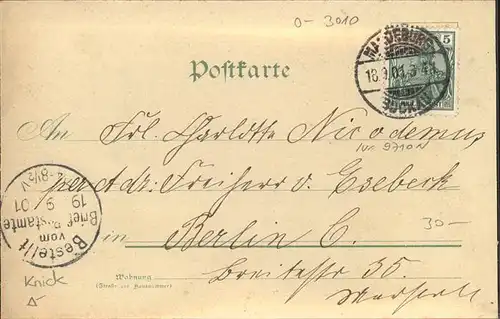 0-3010
5
MAGDEBURG
18.9.01.
BUCKAU
Postkarte
An Frl. Charlotte Nicodemus
9710N
per Adr: Freiherr v. Esebeck
30-
in Berlin C.
Breitestr 35.
Wohnung
(Straße und Hausnummer)
Bestellt
vom
Brief Postamte
19 9 01
8½V
Knick